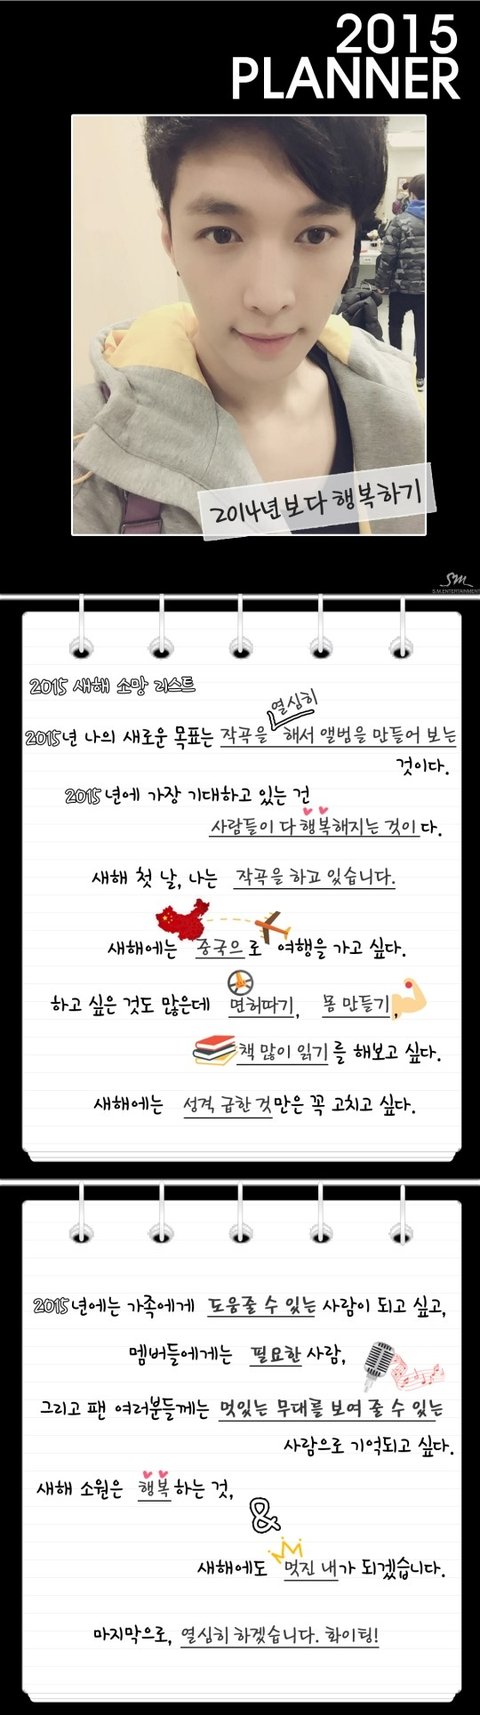 2015
PLANNER
2014년보다 행복하기
SM
S.M.ENTERTAINMENT
2015 새해 소망 리스트
열심히
2015년 나의 새로운 목표는 작곡을 해서 앨범을 만들어 보는
것이다.
2015년에 가장 기대하고 있는 건
사람들이 다 행복해지는 것이다.
새해 첫 날, 나는 작곡을 하고 있습니다.
새해에는 중국으로 여행을 가고 싶다.
하고 싶은 것도 많은데 면허따기, 몸 만들기,
책 많이 읽기를 해보고 싶다.
새해에는 성격 급한 것만은 꼭 고치고 싶다.
2015년에는 가족에게 도움줄 수 있는 사람이 되고 싶고,
멤버들에게는 필요한 사람,
그리고 팬 여러분들께는 멋있는 무대를 보여 줄 수 있는
사람으로 기억되고 싶다.
새해 소원은 행복하는 것,
&
새해에도 멋진 내가 되겠습니다.
마지막으로, 열심히 하겠습니다. 화이팅!